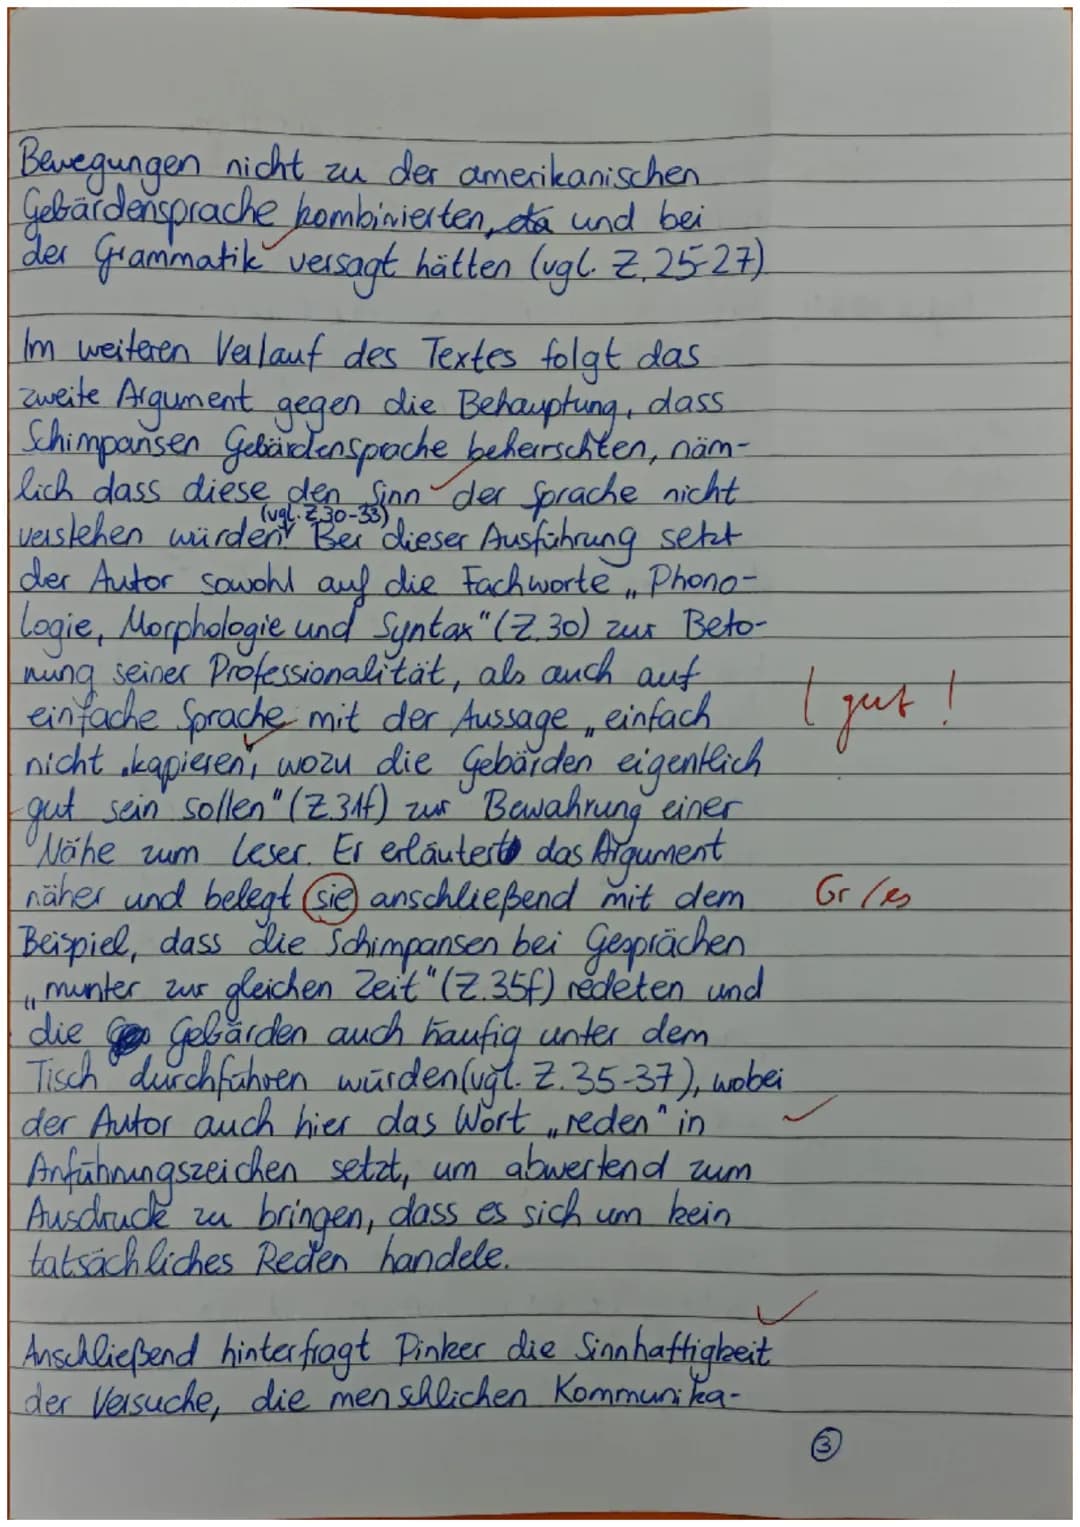 Bewegungen nicht zu der amerikanischen
Gebärdensprache kombinierten, und bei
der Grammatik versagt hätten (vgl. Z. 25-27)
Im weiteren Verlauf des Textes folgt das
zweite Argument gegen die Behauptung, dass
Schimpansen Gebärdensprache beherrschten, näm-
lich dass diese den Sinn der Sprache nicht
(vgl. Z 30-33)
verstehen würden. Bei dieser Ausführung setzt
der Autor sowohl auf die Fachworte „Phono-
logie, Morphologie und Syntax" (Z. 30) zur Beto-
nung seiner Professionalität, als auch auf
einfache Sprache mit der Aussage „einfach
gut!
nicht kapieren, wozu die Gebärden eigentlich
gut sein sollen" (Z. 31f) zur Bewahrung einer
Nähe zum Leser. Er erläutert das Argument
näher und belegt sie anschließend mit dem
Gr / es
Beispiel, dass die Schimpansen bei Gesprächen
„munter zur gleichen Zeit" (Z. 35f) redeten und
die Gebärden auch häufig unter dem
Tisch durchführen würden (vgl. Z. 35-37), wobei
der Autor auch hier das Wort „reden" in
Anführungszeichen setzt, um abwertend zum
Ausdruck zu bringen, dass es sich um kein
tatsächliches Reden handele.
Anschließend hinterfragt Pinker die Sinnhaftigkeit
der Versuche, die menschlichen Kommunika-
3